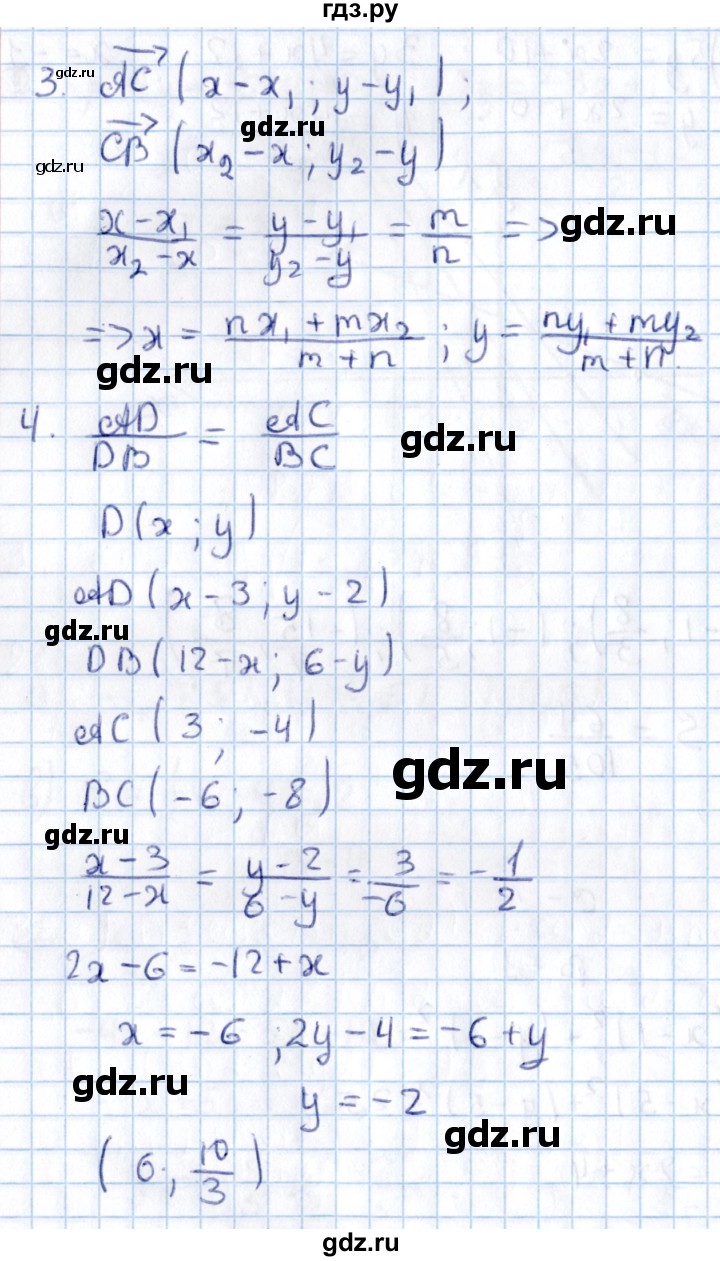 гдз.ру
3. gdz.ru AC (x-x₁; y-y₁);
gdz.ru
gdz.ru CB (x₂-x; y₂-y)
(x-x₁)/(x₂-x) = (y-y₁)/(y₂-y) = m/n => gdz.ru
=> x = (nx₁+mx₂)/(m+n); y = (ny₁+my₂)/(m+n).
gdz.ru
4. AD/DB = AC/BC gdz.ru
D(x; y)
AD(x-3; y-2)
gdz.ru
DB(12-x; 6-y)
AC(3; -4)
gdz.ru
BC(-6; -8)
gdz.ru
(x-3)/(12-x) = (y-2)/(6-y) = 3/-6 = -1/2
2x-6=-12+x
x=-6; 2y-4=-6+y
gdz.ru
y=-2
gdz.ru
(6; 10/3)
gdz.ru